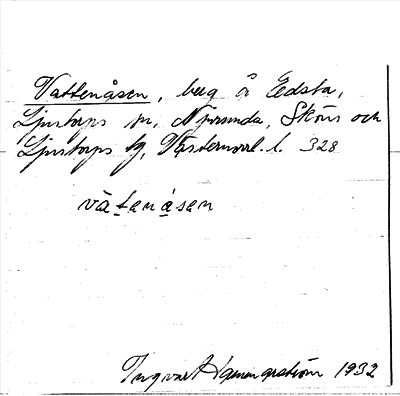 Vattenåsen, beg å Edsta,
Ljustorps sn, Njurunda, Sköns och
Ljustorps tg, Västernorrl. l. 328
vàtenásen
Ingvar Hammarström 1932